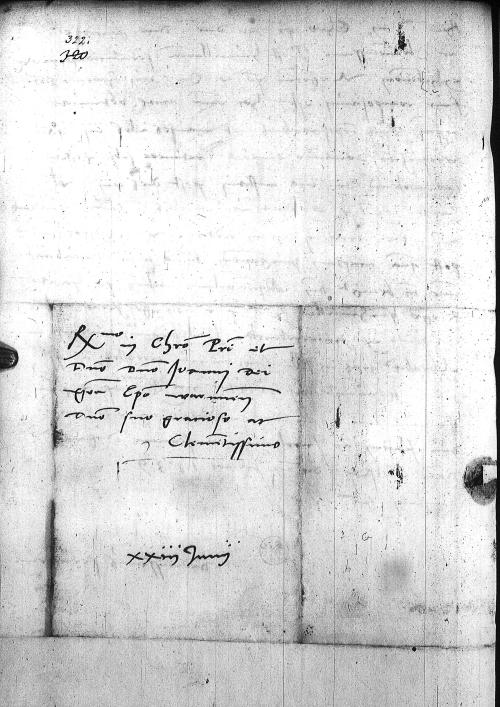 322.
320
Rmo in Chro Pri et
Dno Dno Joanni dei
gra Epo warmien
Dno suo gracioso ac
Clementissimo
xxiiii Junii